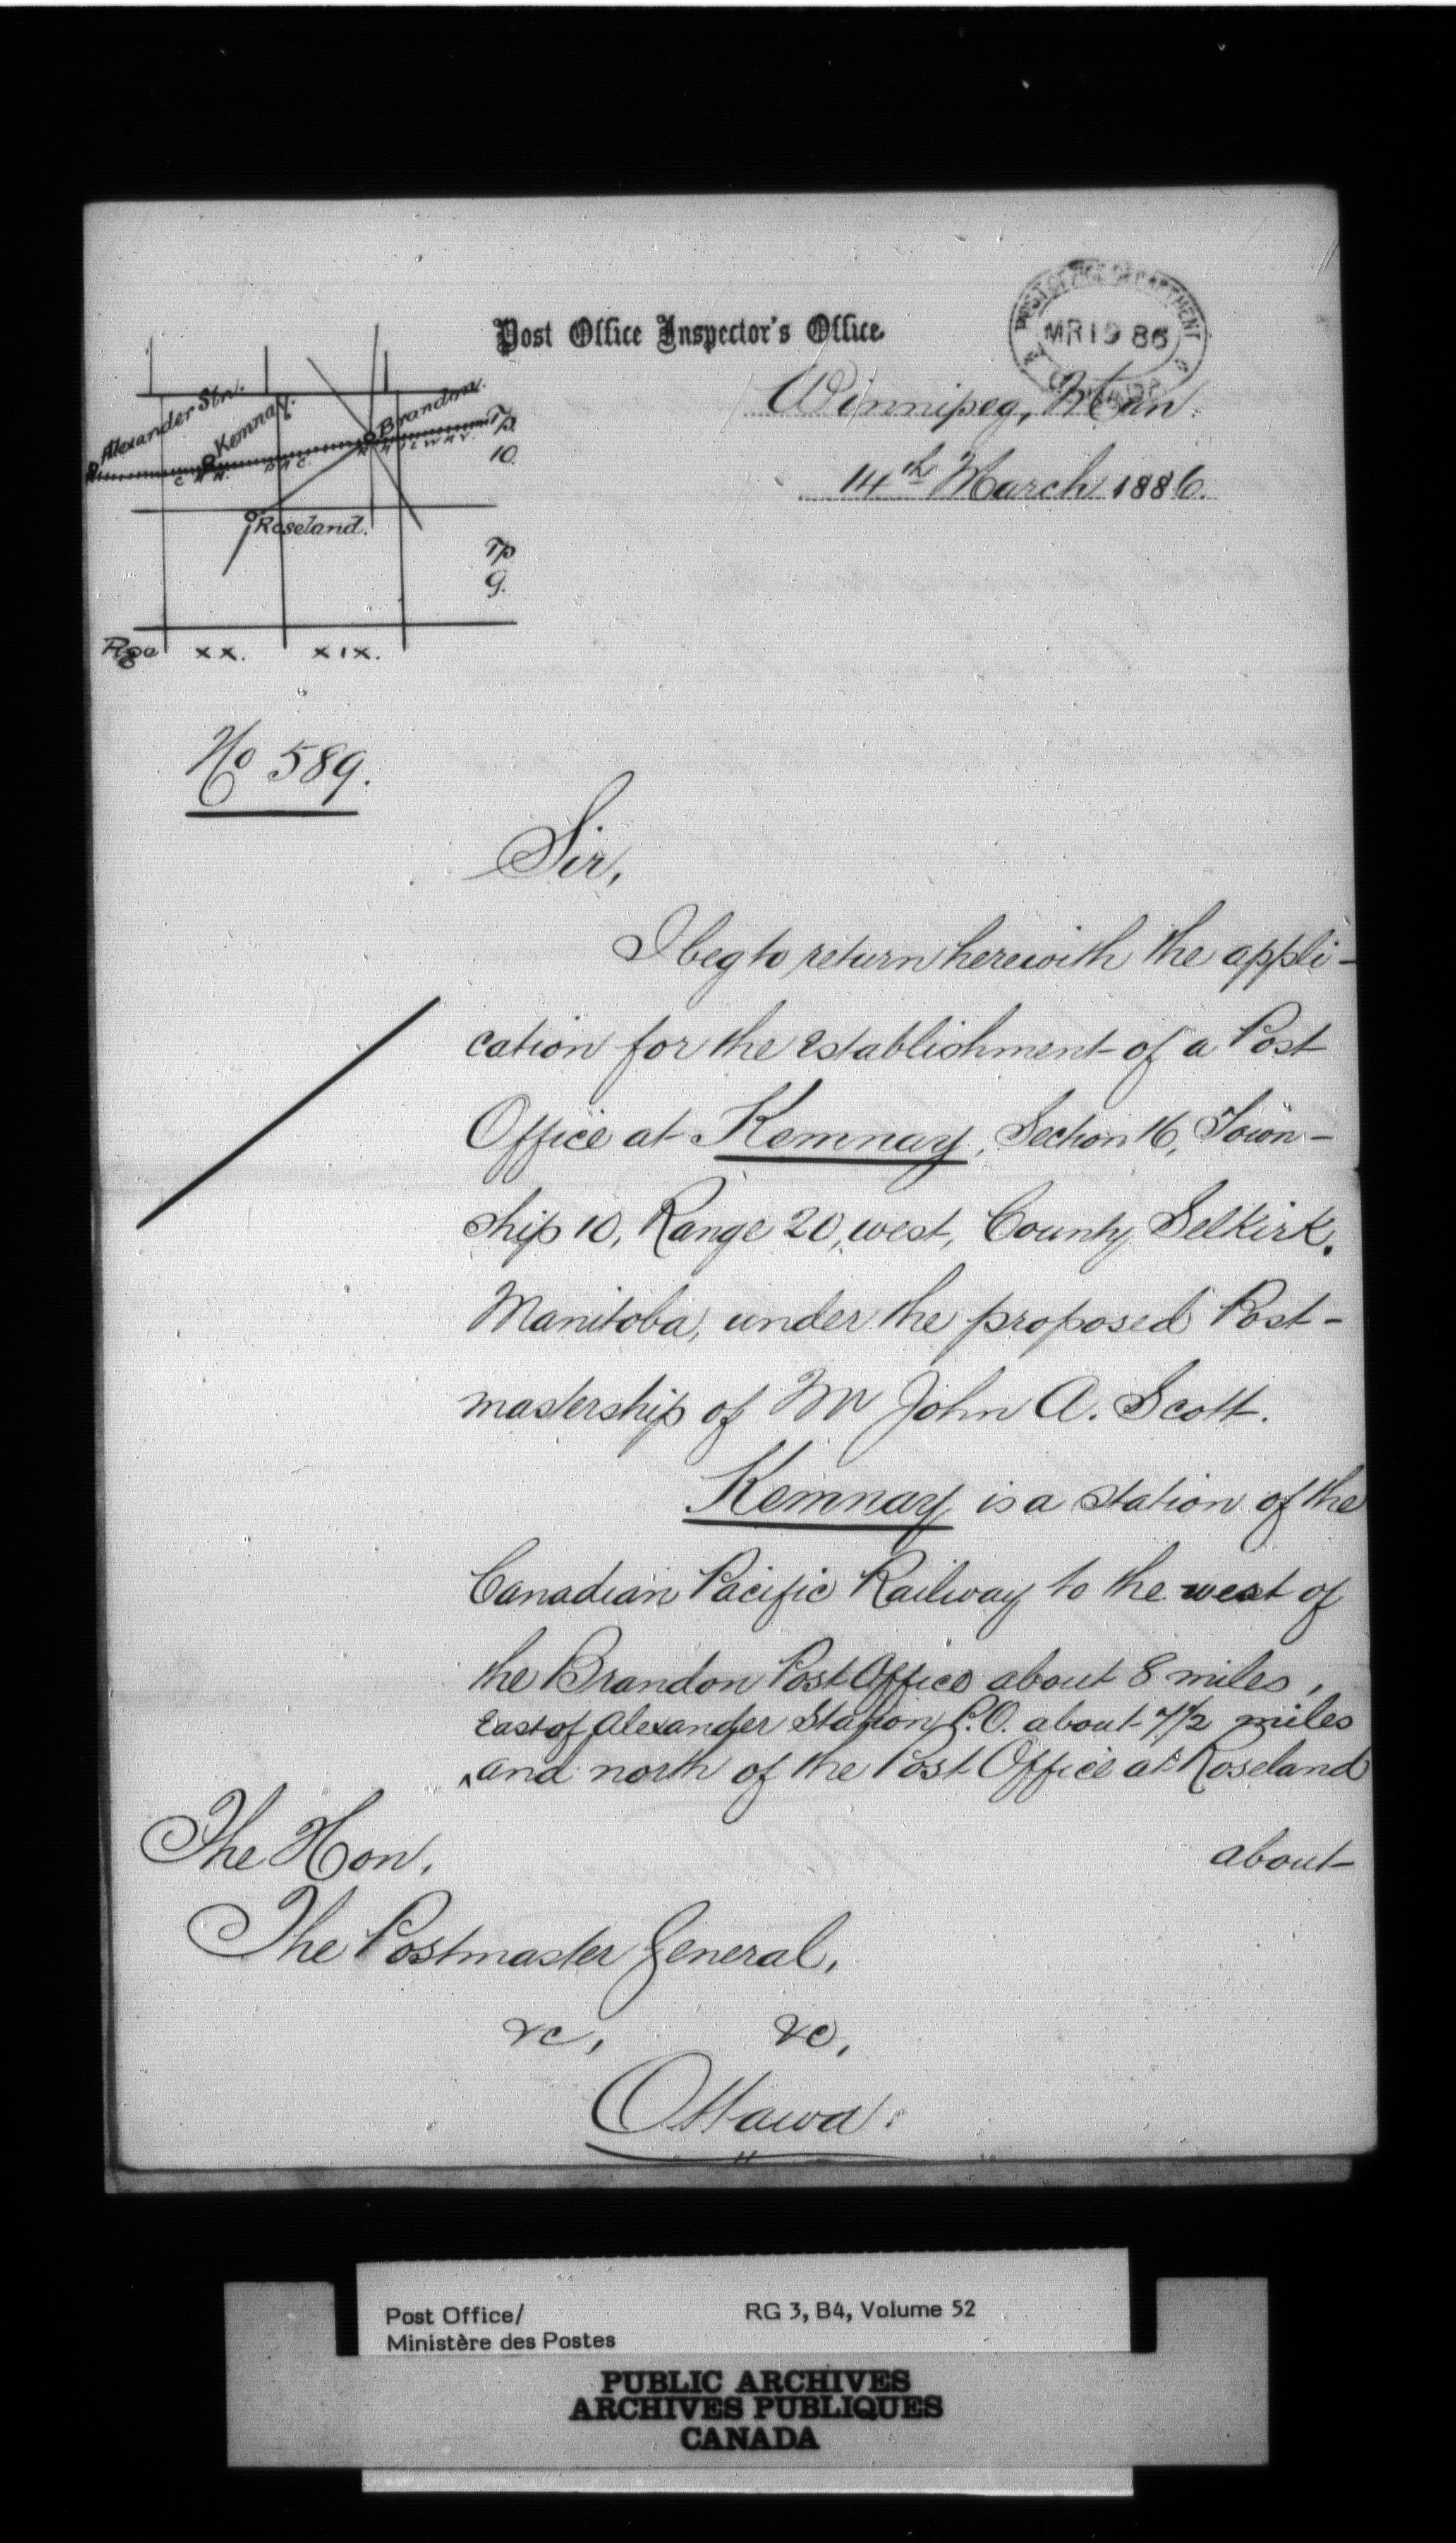 Post Office Inspector's Office
POST OFFICE DEPARTMENT
MR 19 86
CANADA
Winnipeg, Man.
14th March 1886.
Alexander Stn.
Kemnay.
Brandon.
Tp.
10.
C A N. P A C. R A I L W A Y.
Roseland.
Tp
9.
Rge XX. XIX.
No 589.
Sir,
I beg to return herewith the appli-
cation for the establishment of a Post
Office at Kemnay, Section 16, Town-
ship 10, Range 20, west, County Selkirk.
Manitoba, under the proposed Post-
mastership of Mr John A. Scott.
Kemnay is a station of the
Canadian Pacific Railway to the west of
the Brandon Post Office about 8 miles,
East of Alexander Station P.O. about 7 1/2 miles
^and north of the Post Office at Roseland
about
The Hon.
The Postmaster General,
&c, &c,
Ottawa.
Post Office/
Ministère des Postes
RG 3, B4, Volume 52
PUBLIC ARCHIVES
ARCHIVES PUBLIQUES
CANADA